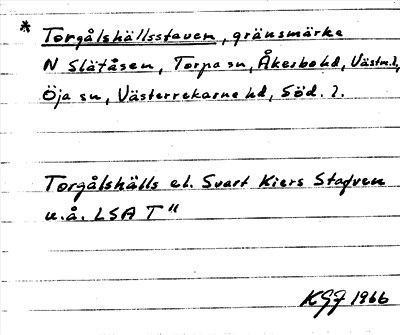 * Torgålshällsstaven, gränsmärke
N Slätåsen, Torpa sn, Åkerbo hd, Västm. l,
Öja sn, Västerrekarne hd, Söd. l.
Torgålshälls el. Svart Kiers Stafven
u.å. LSA T"
KGJ 1966